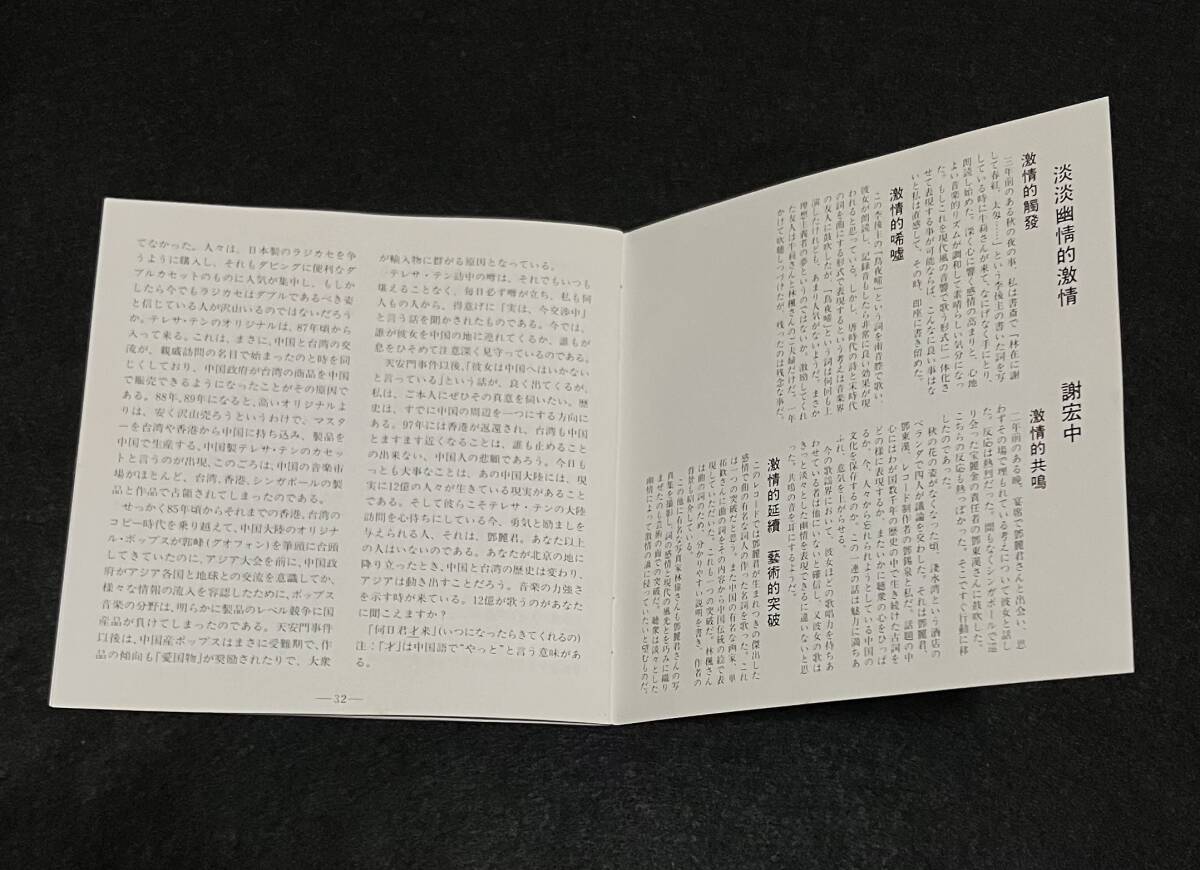 てなかった。人々は、日本製のラジカセを争
うように購入し、それもダビングに便利なダ
ブルカセットのものに人気が集中し、もしか
したら今でもラジカセはダブルであるべき姿
と信じている人が沢山いるのではないだろう
か。テレサ・テンのオリジナルは、87年頃から
入って来る。これは、まさに、中国と台湾の交
流が、親戚訪問の名目で始まったのと時を同
じくしており、中国政府が台湾の商品を中国
で販売できるようになったことがその原因で
ある。88年、89年になると、高いオリジナルよ
りは、安く沢山売ろうというわけで、マスタ
ーを台湾や香港から中国に持ち込み、製品を
中国で生産する、中国製テレサ・テンのカセッ
トと言うのが出現、このごろは、中国の音楽市
場がほとんど、台湾、香港、シンガポールの製
品と作品で占領されてしまったのである。
せっかく85年頃からそれまでの香港、台湾の
コピー時代を乗り越えて、中国大陸のオリジナ
ル・ポップスが郭峰(グオフォン)を筆頭に台頭
してきていたのに、アジア大会を前に、中国政
府がアジア各国と地球との交流を意識してか、
様々な情報の流入を容認したために、ポップス
音楽の分野は、明らかに製品のレベル競争に国
産品が負けてしまったのである。天安門事件
以後は、中国産ポップスはまさに受難期で、作
品の傾向も「愛国物」が奨励されたりで、大衆
が輸入物に群がる原因となっている。
テレサ・テン訪中の噂は、それでもいつも
堪えることなく、毎日必ず噂が立ち、私も何
人もの人から、得意げに「実は、今交渉中」
と言う話を聞かされたものである。今では、
誰が彼女を中国の地に連れてくるか、誰もが
息をひそめて注意深く見守っているのである。
天安門事件以後、「彼女は中国へはいかない
と言っている」という話が、良く出てくるが、
私は、ご本人にぜひその真意を伺いたい。歴
史は、すでに中国の周辺を一つにする方向に
ある。97年には香港が返還され、台湾も中国
とますます近くなることは、誰も止めること
の出来ない、中国人の悲願であろう。今日も
っとも大事なことは、あの中国大陸には、現
実に12億の人々が生きている現実があること
である。そして彼らこそテレサ・テンの大陸
訪問を心待ちにしている今、勇気と励ましを
与えられる人、それは、鄧麗君。あなた以上
の人はいないのである。あなたが北京の地に
降り立ったとき、中国と台湾の歴史は変わり、
アジアは動き出すことだろう。音楽の力強さ
を示す時が来ている。12億が歌うのがあなた
に聞こえますか?
「何日君才来」(いつになったらきてくれるの)
注:「才」は中国語で“やっと”と言う意味があ
る。
—32—
淡淡幽情的激情　謝宏中
激情的觸發
三年前のある秋の夜の事、私は書斎で「林花に謝
して春紅、太匆……」という李後主の書いた詞を写
している時に牛莉さんが来て、なにげなく手にとり、
朗読し始めた。深く心に響く感情の高まりと、心地
よい音楽的リズムが調和して素晴らしい気分になっ
た。もしこれを現代風の音響で歌う形式に一体化さ
せて表現する事が可能ならば、こんなに良い事はな
いと私は直感して、その時、即座に書き留めた。
激情的唏噓
この李後主の「烏夜啼」という詞を南音腔で歌い、
彼女が朗読し、記録音もしたら非常に良い効果が現
われると思っている。しかし、唐時代の詩と宋時代
の詞を曲にする形式で表現するという考えは音楽界
の友人に鼓吹したが、「烏夜啼」という詞は何回も上
演したけれども、あまり人気がないようだ。まさか
理想主義者の夢というのではないか。激励してくれ
た友人は牛莉さんと林楓さんのご夫婦だけだ。一年
かけて吹聴しつづけたが、残ったのは残念な事だ。
激情的共鳴
二年前のある晩、宴席で鄧麗君さんと出会い、思
わずその場で埋もれている考えについて彼女と話し
た。反応は熱烈だった。間もなくシンガポールで巡
り会った宝麗金の責任者の鄧東漢さんに鼓吹した。
こちらの反応も熱っぽかった。そこですぐ行動に移
したのであった。
秋の花の姿がなくなった頃、淺水湾という酒店の
ベランダで四人が議論を交わした。それは鄧麗君、
鄧東漢、レコード制作者の鄧錫泉と私だ。話題の中
心にはわが国数千年の歴史の中で生き続けた古詞を
どの様に表現するか、またいかに聴衆の心をひっぱ
るか。今、人々から忘れられてしまっている中国の
文化を保存するのか。この一連の話は魅力に満ちあ
ふれ、意気を上がらせる。
今の歌謡界において、彼女ほどの歌唱力を持ちあ
わせている者は他にいないと確信し、又彼女の歌は
きっと淡々とした幽情を表現できるに違いないと思
った。共鳴の音を耳にするようだ。
激情的延續　藝術的突破
このレコードでは鄧麗君が生まれつきの傑出した
感情で曲の有名な詞人の作った詞を歌った。これ
は一つの突破だと思う。また中国の有名な画家、単
拓歓さんに曲の詞をその内容から中国伝統の絵で表
現していただいた。これも一つの突破だ。林楓さん
は曲の詞のため、分かりやすい説明を書き、作者の
背景も紹介している。
この他に有名な写真家林偉さんも鄧麗君さんの写
真集を撮影し、詞の感情と現代の風光とを巧みに織り
まぜたのも芸術の面での突破だ。聴衆は淡々とした
幽情によって激情の海に浸っていたいと望むものだ。